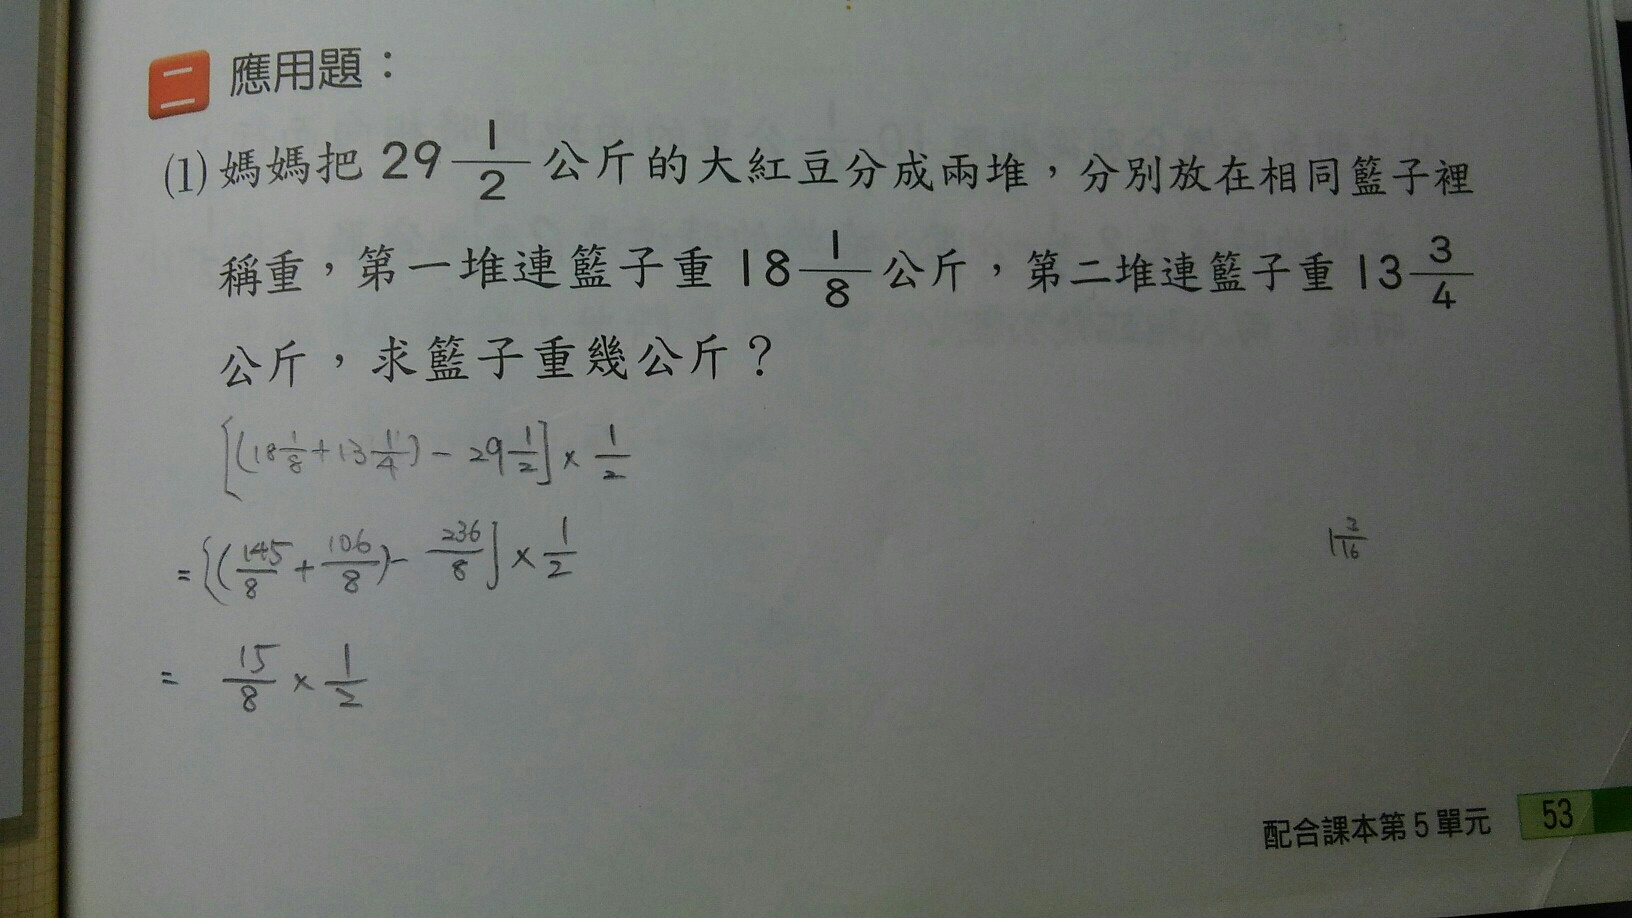 二 應用題：
(1) 媽媽把 29 1/2 公斤的大紅豆分成兩堆，分別放在相同籃子裡
稱重，第一堆連籃子重 18 1/8 公斤，第二堆連籃子重 13 3/4
公斤，求籃子重幾公斤？
[(18 1/8 + 13 1/4) - 29 1/2] × 1/2
= [(145/8 + 106/8) - 236/8] × 1/2
1 2/16
= 15/8 × 1/2
配合課本第 5 單元 53